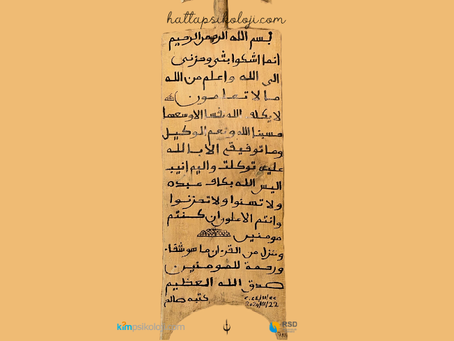 hattapsikoloji.com
بسم الله الرحمن الرحيم
انما اشكوا بثي وحزني
الى الله واعلم من الله
ما لا تعلمون
لا يكلف الله نفسا الا وسعها
حسبنا الله ونعم الوكيل
وما توفيقي الا بالله
عليه توكلت واليه انيب
اليس الله بكاف عبده
ولا تهنوا ولا تحزنوا
وانتم الاعلون ان كنتم
مومنين
وننزل من القران ما هو شفاء
ورحمة للمومنين
صدق الله العظيم
كتبه صالح
kimpsikoloji.com
PSD